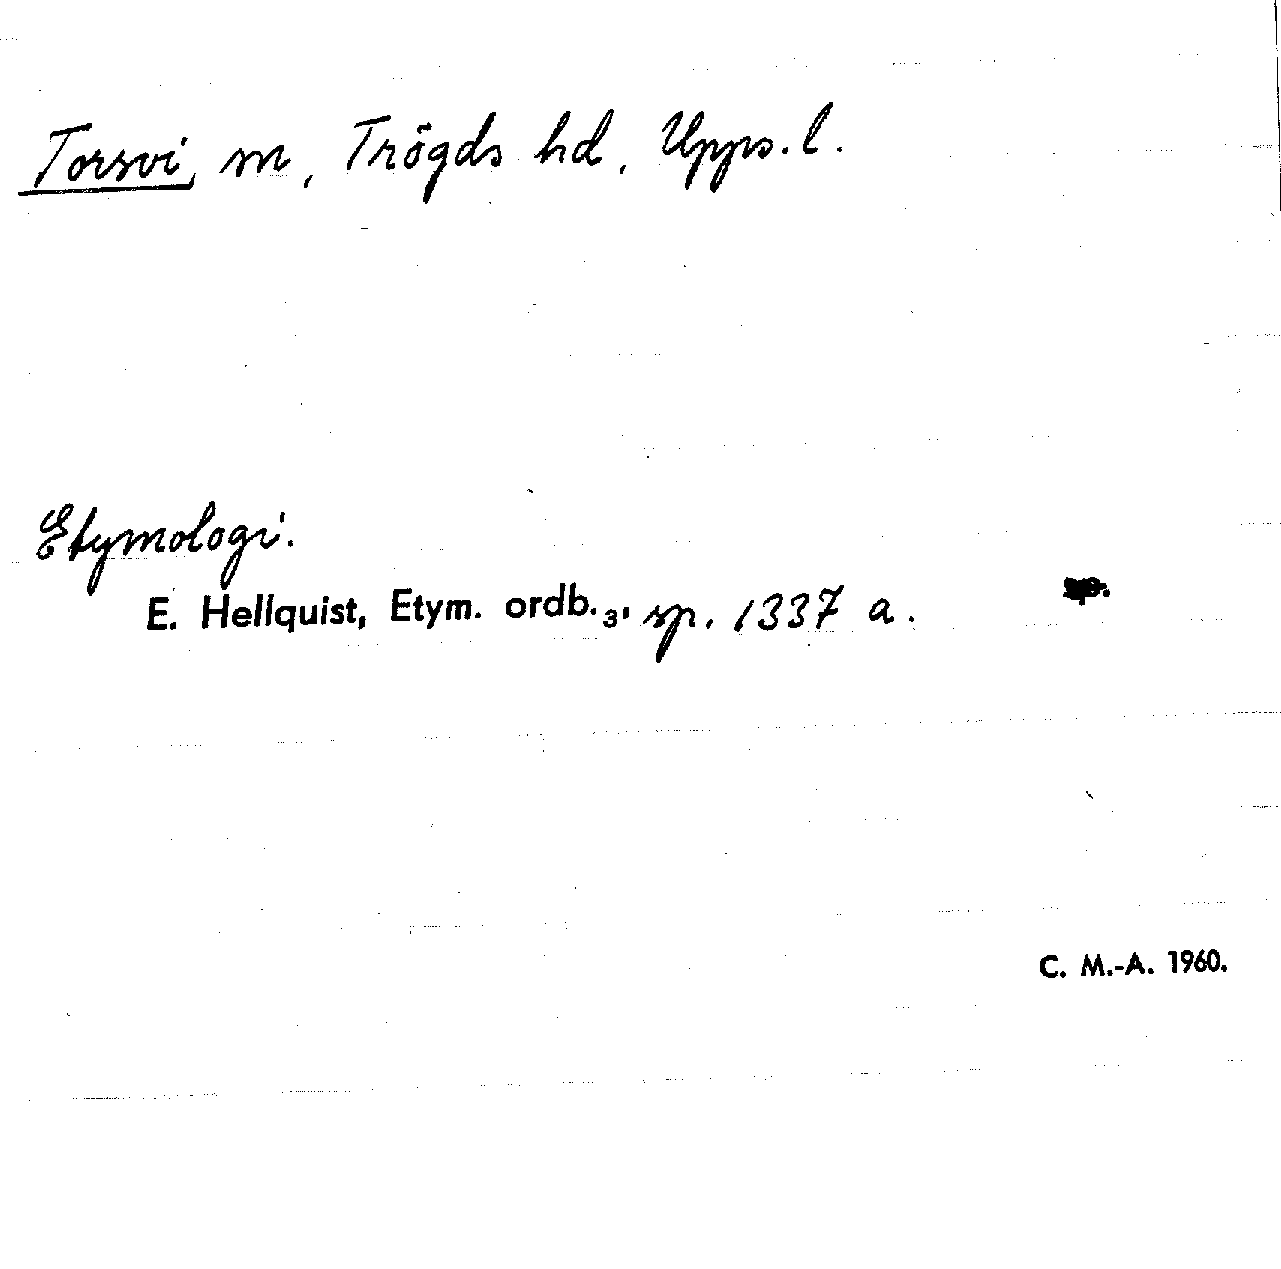 Torsvi, sn, Trögds hd, Upps. l.
Etymologi.
E. Hellquist, Etym. ordb.₃, sp. 1337 a.
C. M.-A. 1960.